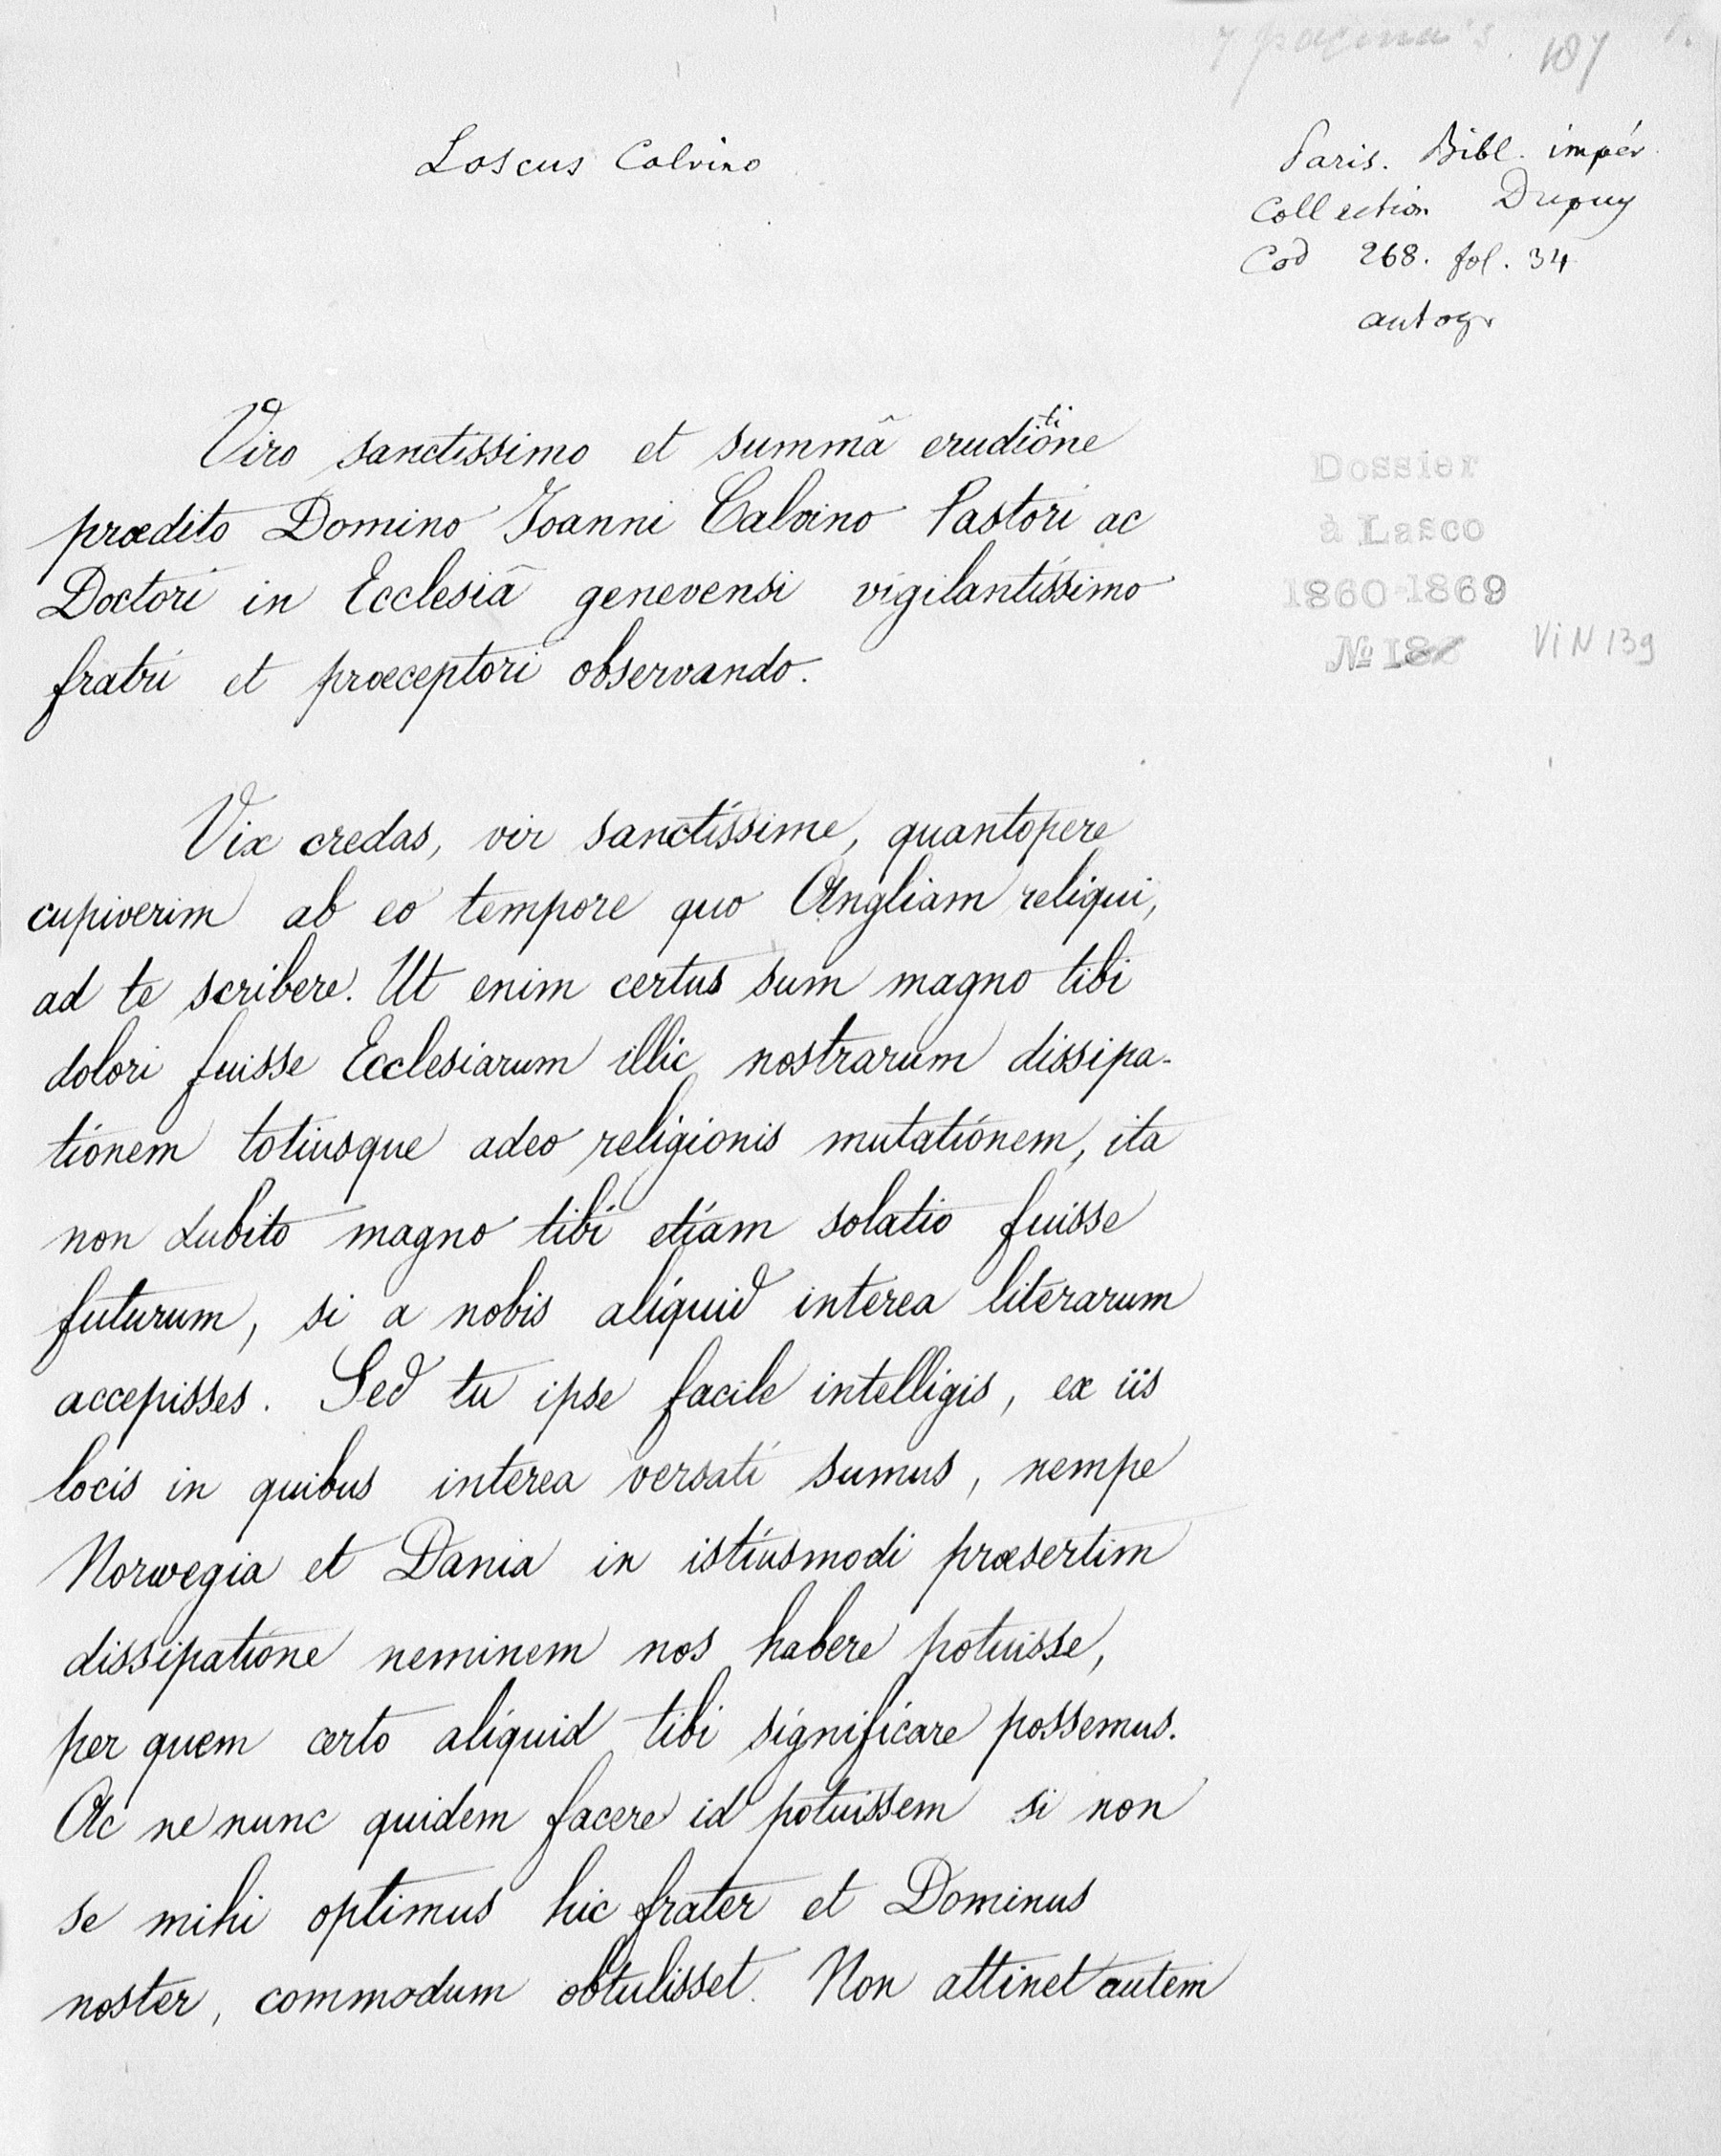 7 pagina's. 187
Lascus Calvino
Paris. Bibl. impér.
Collection Dupuy
Cod 268. fol. 34
autogr
Viro sanctissimo et summâ eruditione
prædito Domino Joanni Calvino Pastori ac
Doctori in Ecclesiâ genevensi vigilantissimo
fratri et præceptori observando.
Dossier
à Lasco
1860-1869
№
ViN 139
Vix credas, vir sanctissime, quantopere
cupiverim ab eo tempore quo Angliam reliqui,
ad te scribere. Ut enim certus sum magno tibi
dolori fuisse Ecclesiarum illic nostrarum dissipa-
tionem totiusque adeo religionis mutationem, ita
non dubito magno tibi etiam solatio fuisse
futurum, si a nobis aliquid interea literarum
accepisses. Sed tu ipse facile intelligis, ex iis
locis in quibus interea versati sumus, nempe
Norwegia et Dania in istiusmodi præsertim
dissipatione neminem nos habere potuisse,
per quem certo aliquid tibi significare possemus.
Ac ne nunc quidem facere id potuissem si non
se mihi optimus hic frater et Dominus
noster, commodum obtulisset. Non attinet autem